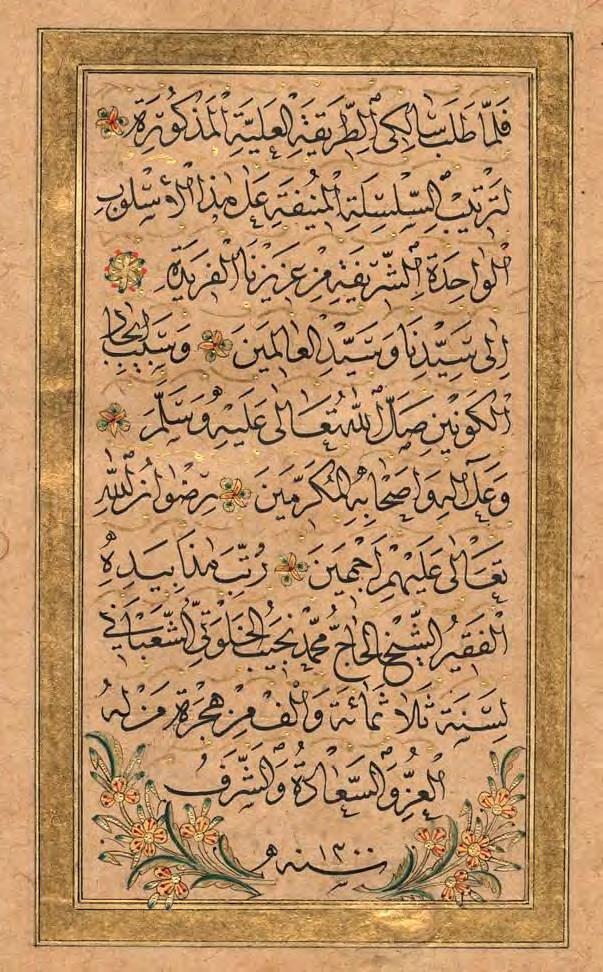 فَلَمَّا طَلَبَ سَالِكِى الطَّرِيقَةِ الْعَلِيَّةِ الْمَذْكُورَةِ
لِتَرْتِيبِ السِّلْسِلَةِ الْمُنِيفَةِ عَلَى هٰذَا الْأُسْلُوبِ
الْوَاحِدَةِ الشَّرِيفَةِ مِنْ عَزِيزِنَا الْفَرِيدَةِ
اِلٰى سَيِّدِنَا وَسَيِّدِ الْعَالَمِينَ وَسَبَبِ اِيجَادِ
الْكَوْنَيْنِ صَلَّى اللّٰهُ تَعَالٰى عَلَيْهِ وَسَلَّمَ
وَعَلٰى آلِهِ وَاَصْحَابِهِ الْمُكَرَّمِينَ رِضْوَانُ اللّٰهِ
تَعَالٰى عَلَيْهِمْ اَجْمَعِينَ رُتِّبَ هٰذَا بِيَدِهِ
الْفَقِيرُ الشَّيْخُ الْحَاجُّ مُحَمَّدْ نَجِيبُ الْخَلْوَتِىُّ الشَّعْبَانِى
لِسَنَةِ ثَلَاثُمِائَةٍ وَاَلْفٍ مِنْ هِجْرَةِ مَنْ لَهُ
الْعِزُّ وَالسَّعَادَةُ وَالشَّرَفُ
سنه ١٣٠٠